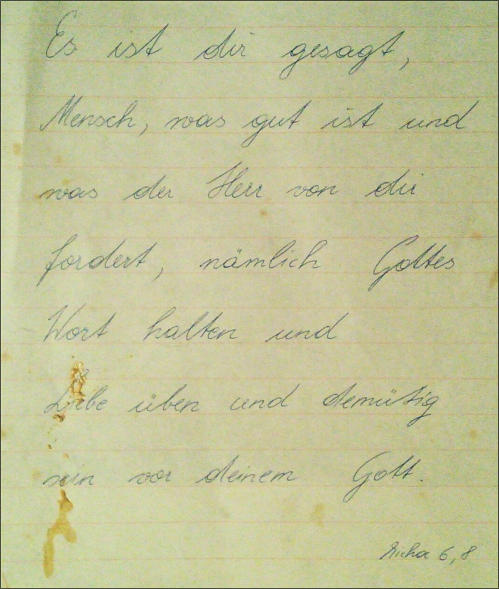 Es ist dir gesagt,
Mensch, was gut ist und
was der Herr von dir
fordert, nämlich Gottes
Wort halten und
Liebe üben und demütig
sein vor deinem Gott.
Micha 6,8